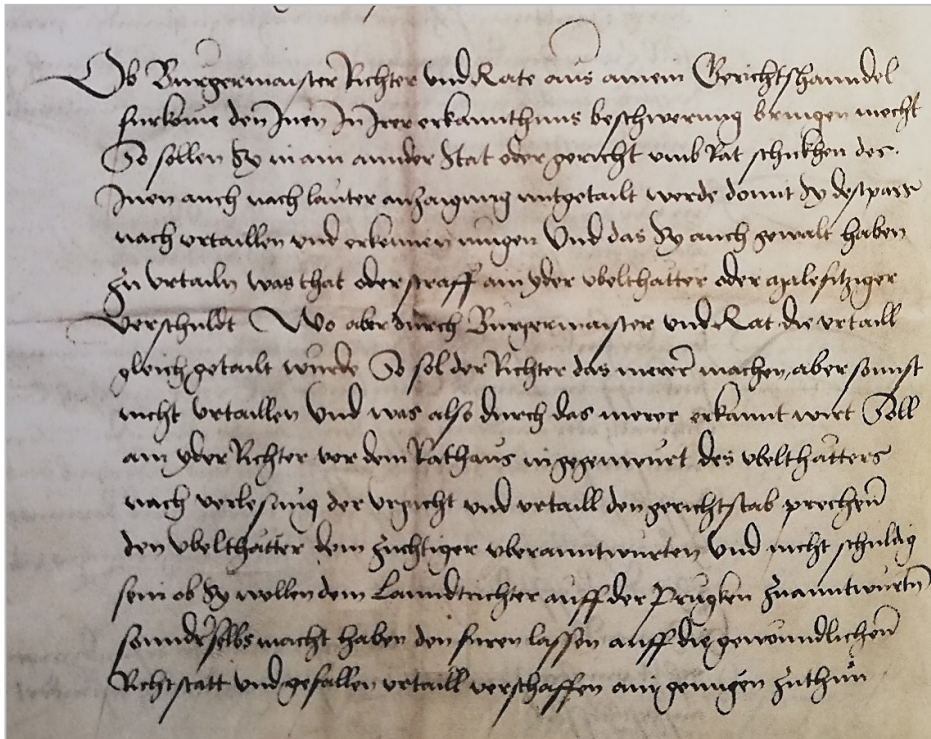 Ob Burgermaister Richter und Rate aus ainem Gerichtshanndel
furkome den Inen In Irer erkanntnuns beschwerung bringen mecht
So sollen Sy in ain annder Stat oder gericht umb Rat schikhen des
Inen auch nach lauter anzaigung mitgetailt werde domit Sy destpass
nach urtaillen und erkennen mugen Und das Sy auch gewalt haben
zu urtailn was that oder straff ain yder ubelthatter oder malefitziger
verschuldt Wo aber durch Burgermaister und Rat die urtaill
gleich getailt wurde So sol der Richter das merer machen, aber sonnst
nicht urtaillen Und was also durch das merer erkannt wirt Soll
ain yder Richter vor dem Rathaus in gegenwurt des ubelthatters
nach verlesung der urgicht und urtaill den gerichtstab prechen
den ubelthatter dem zuchtiger uberanntwurten Und nicht schuldig
sein ob Sy wollen dem Lanndtrichter auff der Prugken zuanntwurtn
sonnder selbs macht haben den furen lassen auff die gewonndlichen
Richtstatt und gefallen urtaill verschaffen ain genugen zuthun